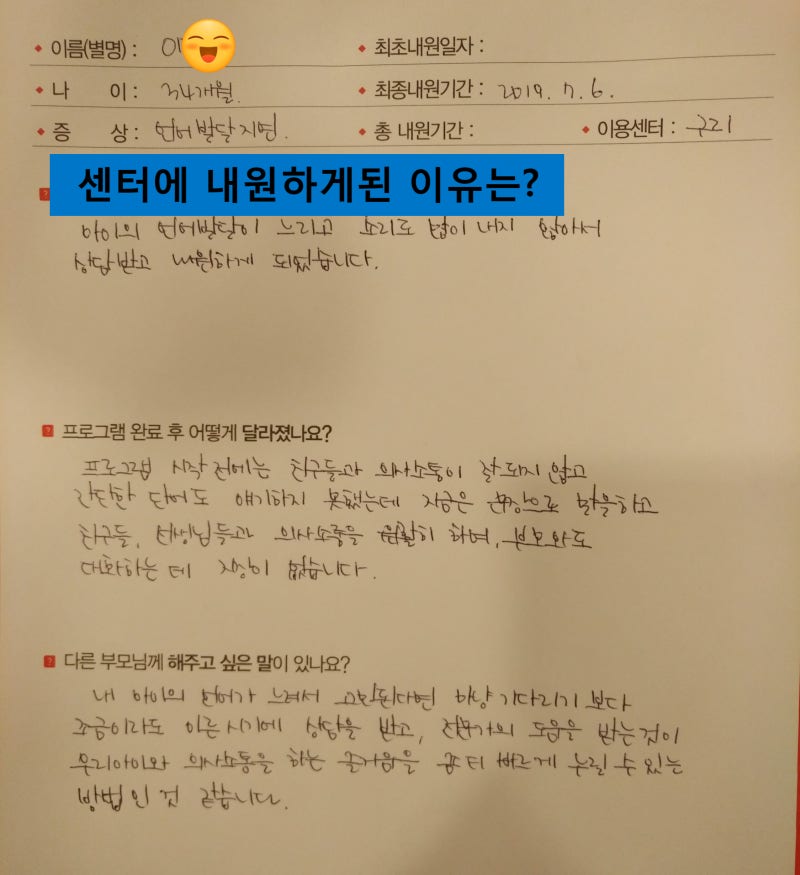 이름(별명) : 이
최초내원일자 :
나 이 : 34개월.
최종내원기간 : 2019. 7. 6.
증 상 : 언어발달지연.
총 내원기간 :
이용센터 : 구리
센터에 내원하게된 이유는?
아이의 언어발달이 느리고 소리도 많이 내지 않아서
상담받고 내원하게 되었습니다.
프로그램 완료 후 어떻게 달라졌나요?
프로그램 시작 전에는 친구들과 의사소통이 잘 되지 않고
간단한 단어도 얘기하지 못했는데 지금은 문장으로 말을하고
친구들, 선생님들과 의사소통을 원활히 하며, 부모와도
대화하는 데 지장이 없습니다.
다른 부모님께 해주고 싶은 말이 있나요?
내 아이의 언어가 느려서 고민된다면 마냥 기다리기 보다
조금이라도 이른 시기에 상담을 받고, 전문가의 도움을 받는것이
우리아이와 의사소통을 하는 즐거움을 좀 더 빠르게 누릴 수 있는
방법인 것 같습니다.